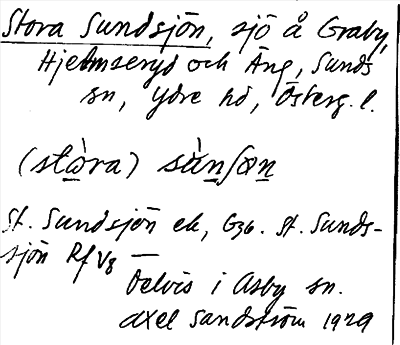 Stora Sundsjön, sjö å Graby,
Hjelmseryd och Äng, Sunds
sn, Ydre hd, Österg. l.
(stòra) sùnʃøn
St. Sundsjön ek, G36. St. Sunds-
sjön Rf V3 —
Delvis i Asby sn.
Axel Sandström 1929